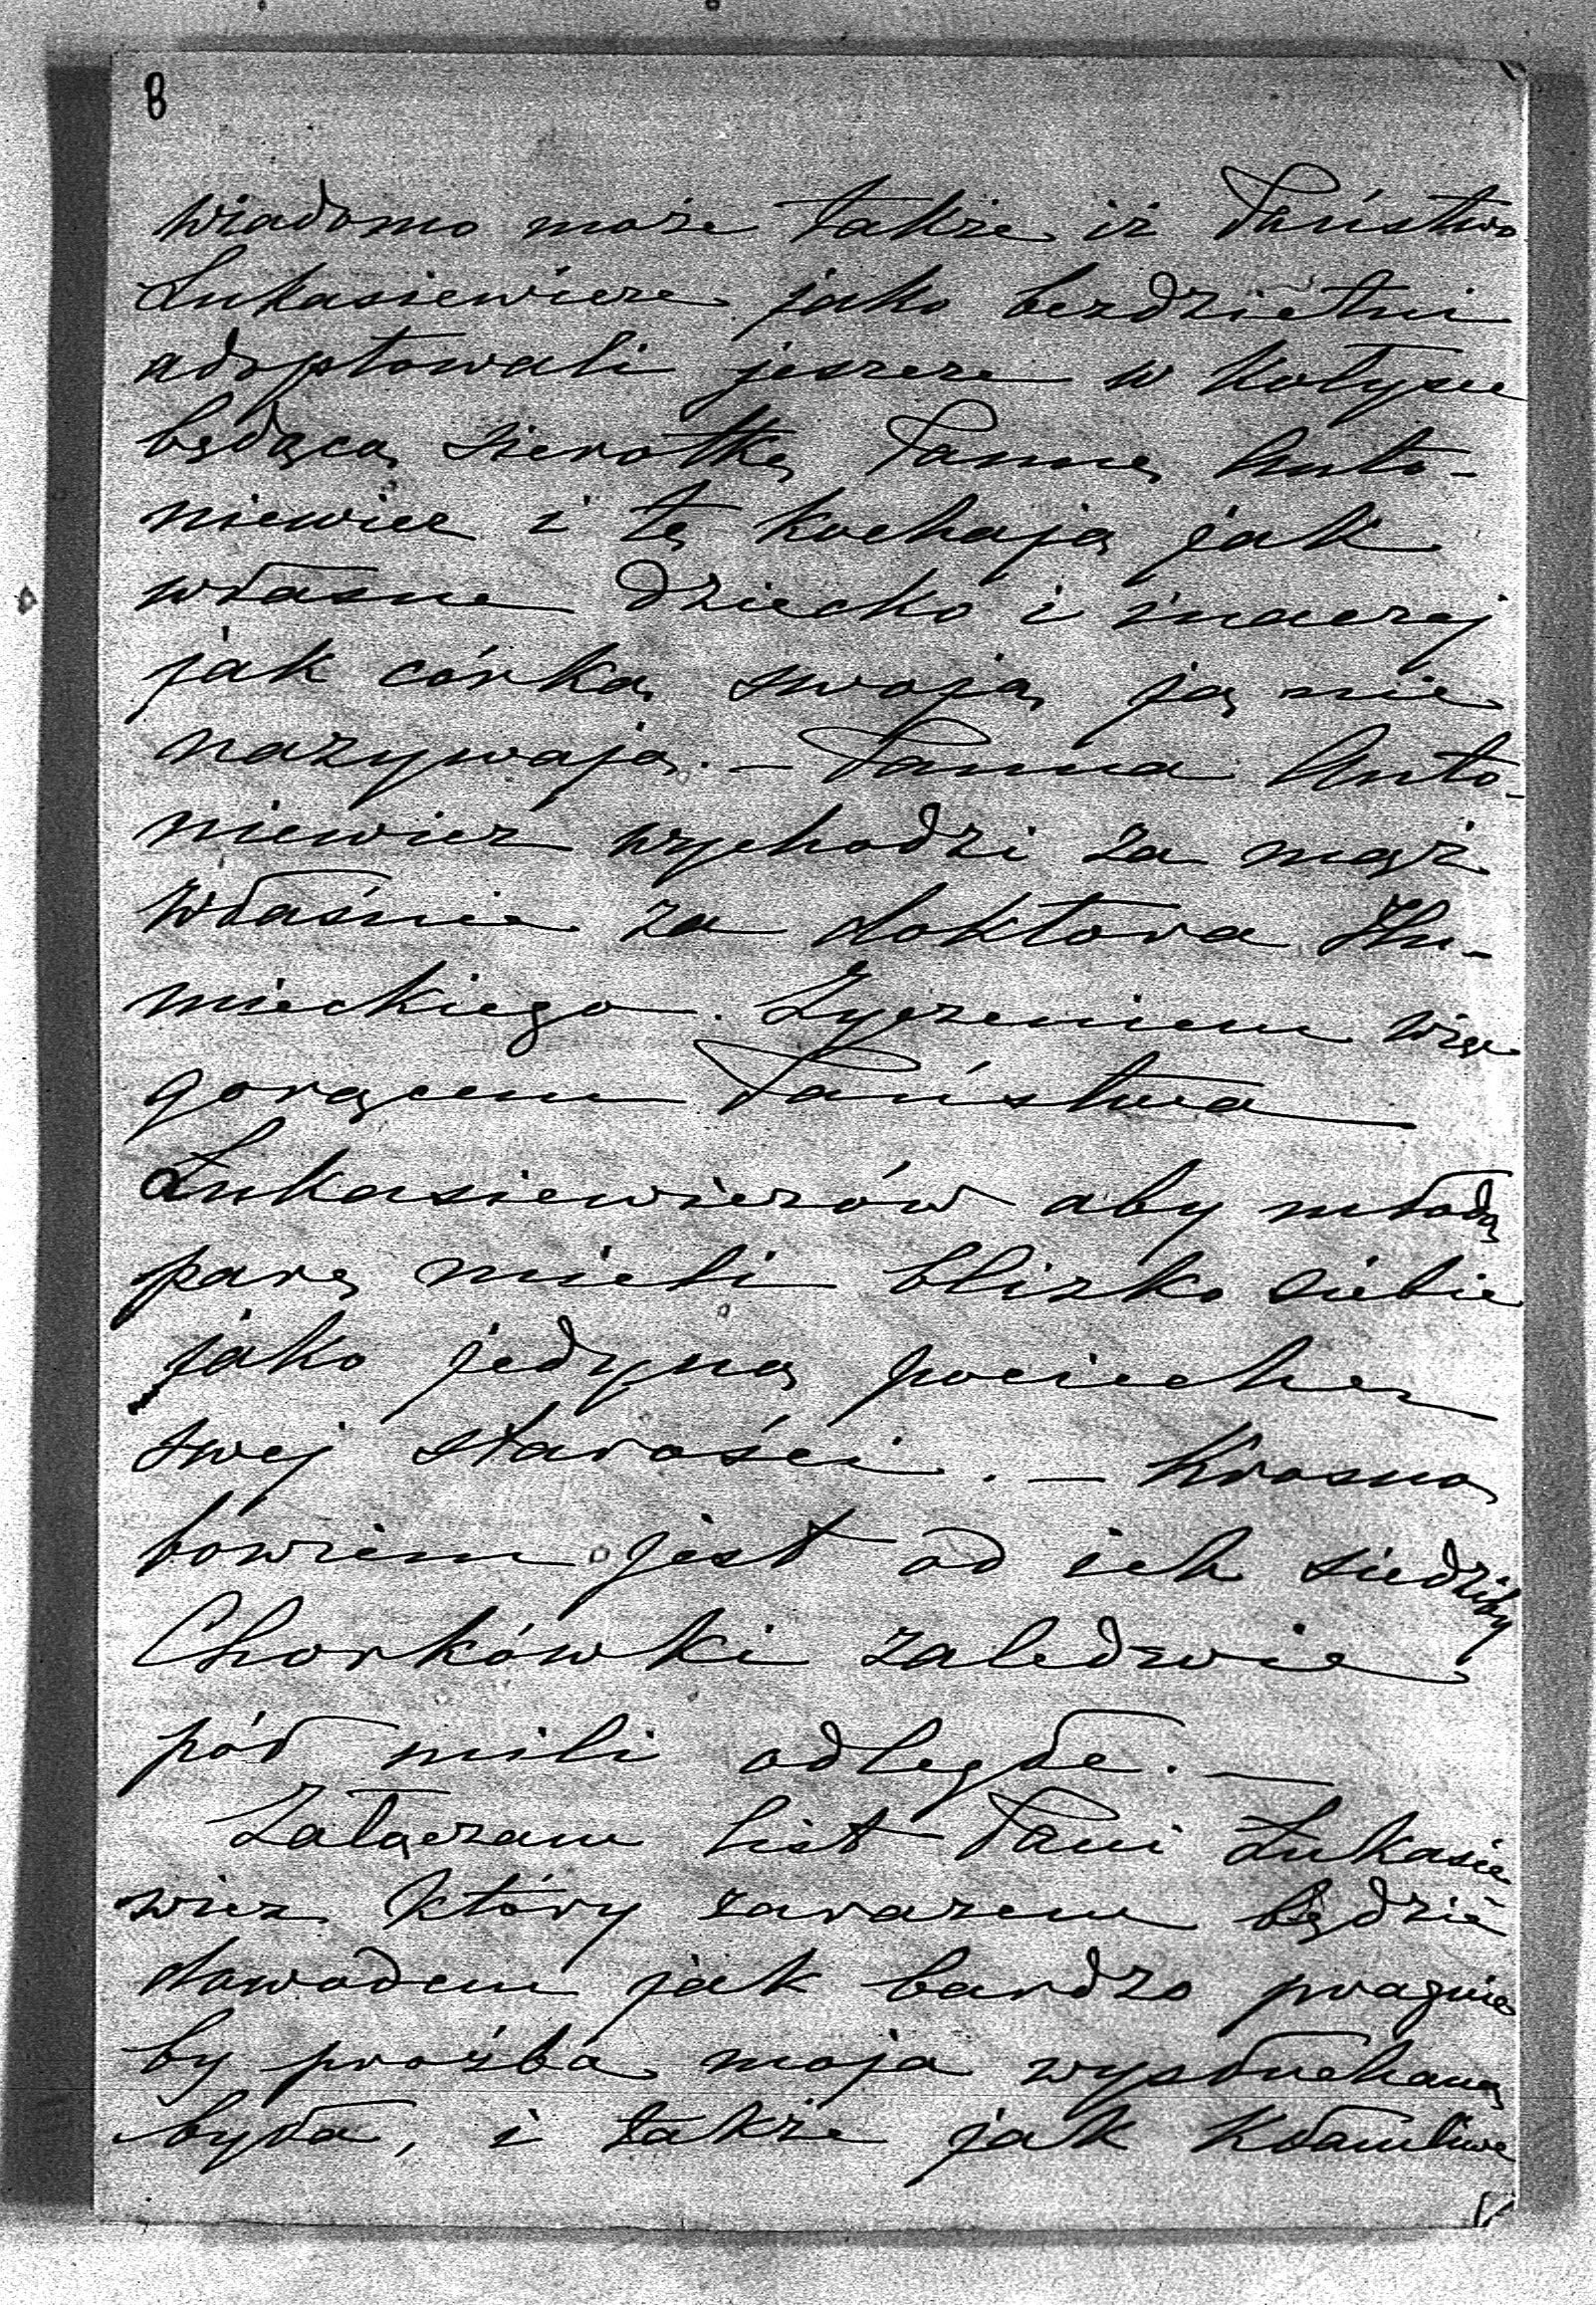 8
wiadomo może także iż Państwo
Łukasiewicze jako bezdzietni
adoptowali jeszcze w kołysce
będącą sierotkę Pannę Anto-
niewicz i tę kochają jak
własne dziecko i inaczej
jak córką swoją ją nie
nazywają. — Panna Anto-
niewicz wychodzi za mąż
właśnie za doktora
mieckiego. Życzeniem więc
gorącem Państwa
Łukasiewiczów aby młodą
parę mieli blizko siebie
jako jedyną pociechę
swej starości. — Krosno
bowiem jest od ich siedziby
Chorkówki zaledwie
pół mili odległe. —
Załączam list Pani Łukasie
wicz który zarazem będzie
dowodem jak bardzo pragnie
by prośba moja wysłuchaną
była, i także jak kłamliwe